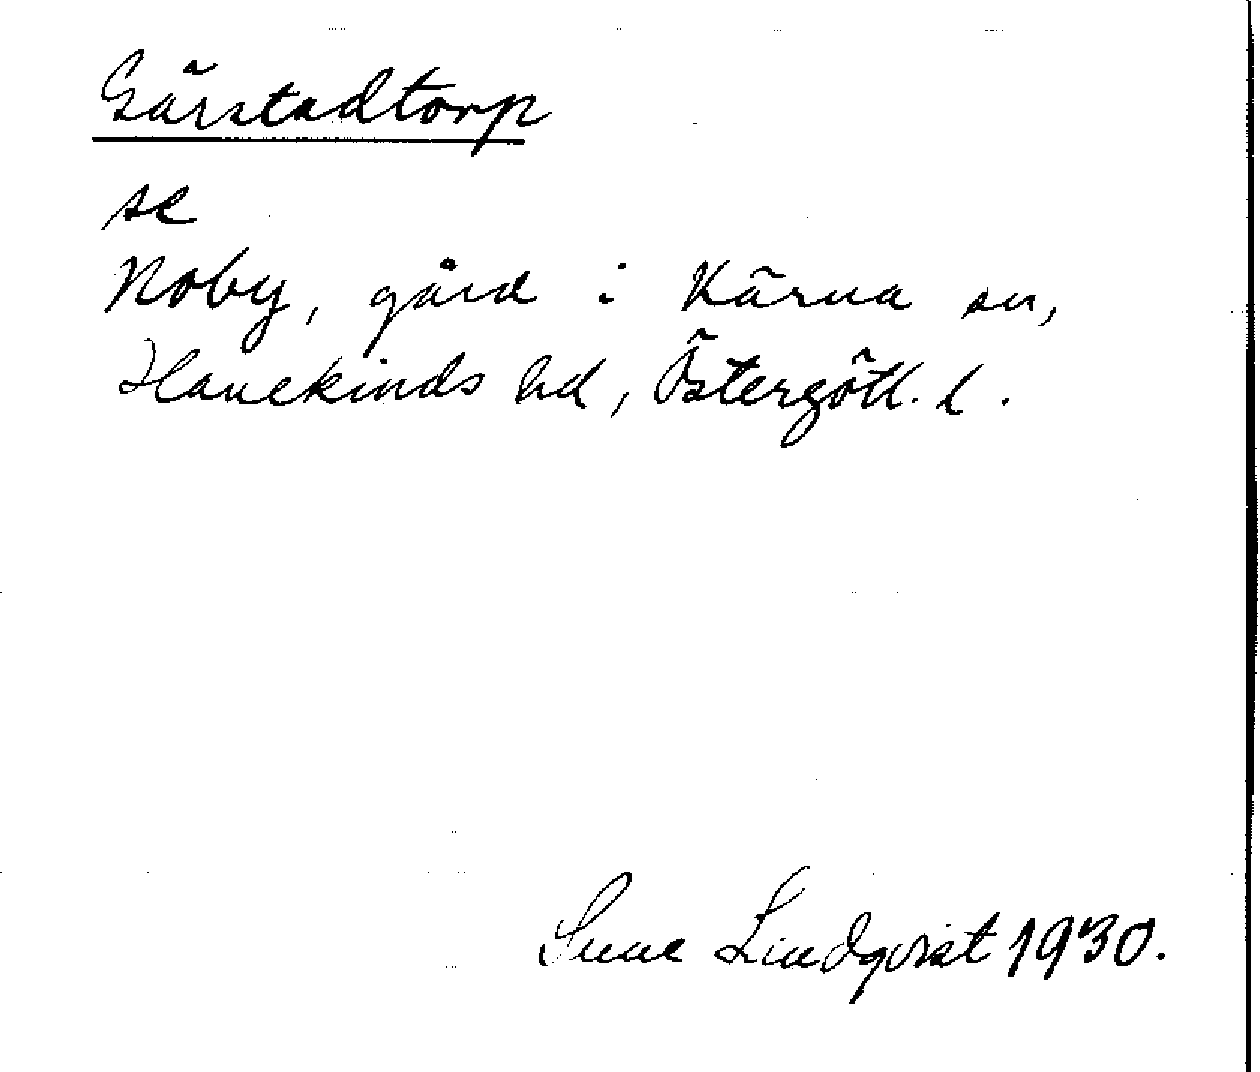 Gärstadtorp
se
Noby, gård i Kärna sn,
Hanekinds hd, Östergötl. l.
Sune Lindqvist 1930.